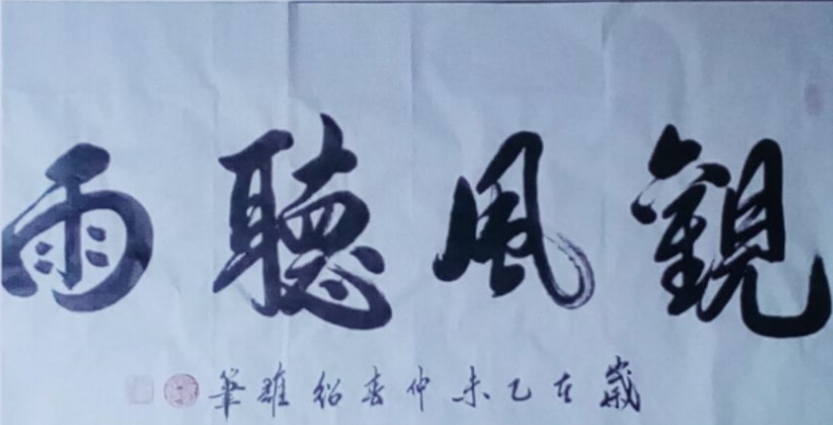 觀風聽雨
歲在乙未仲春紹雄筆